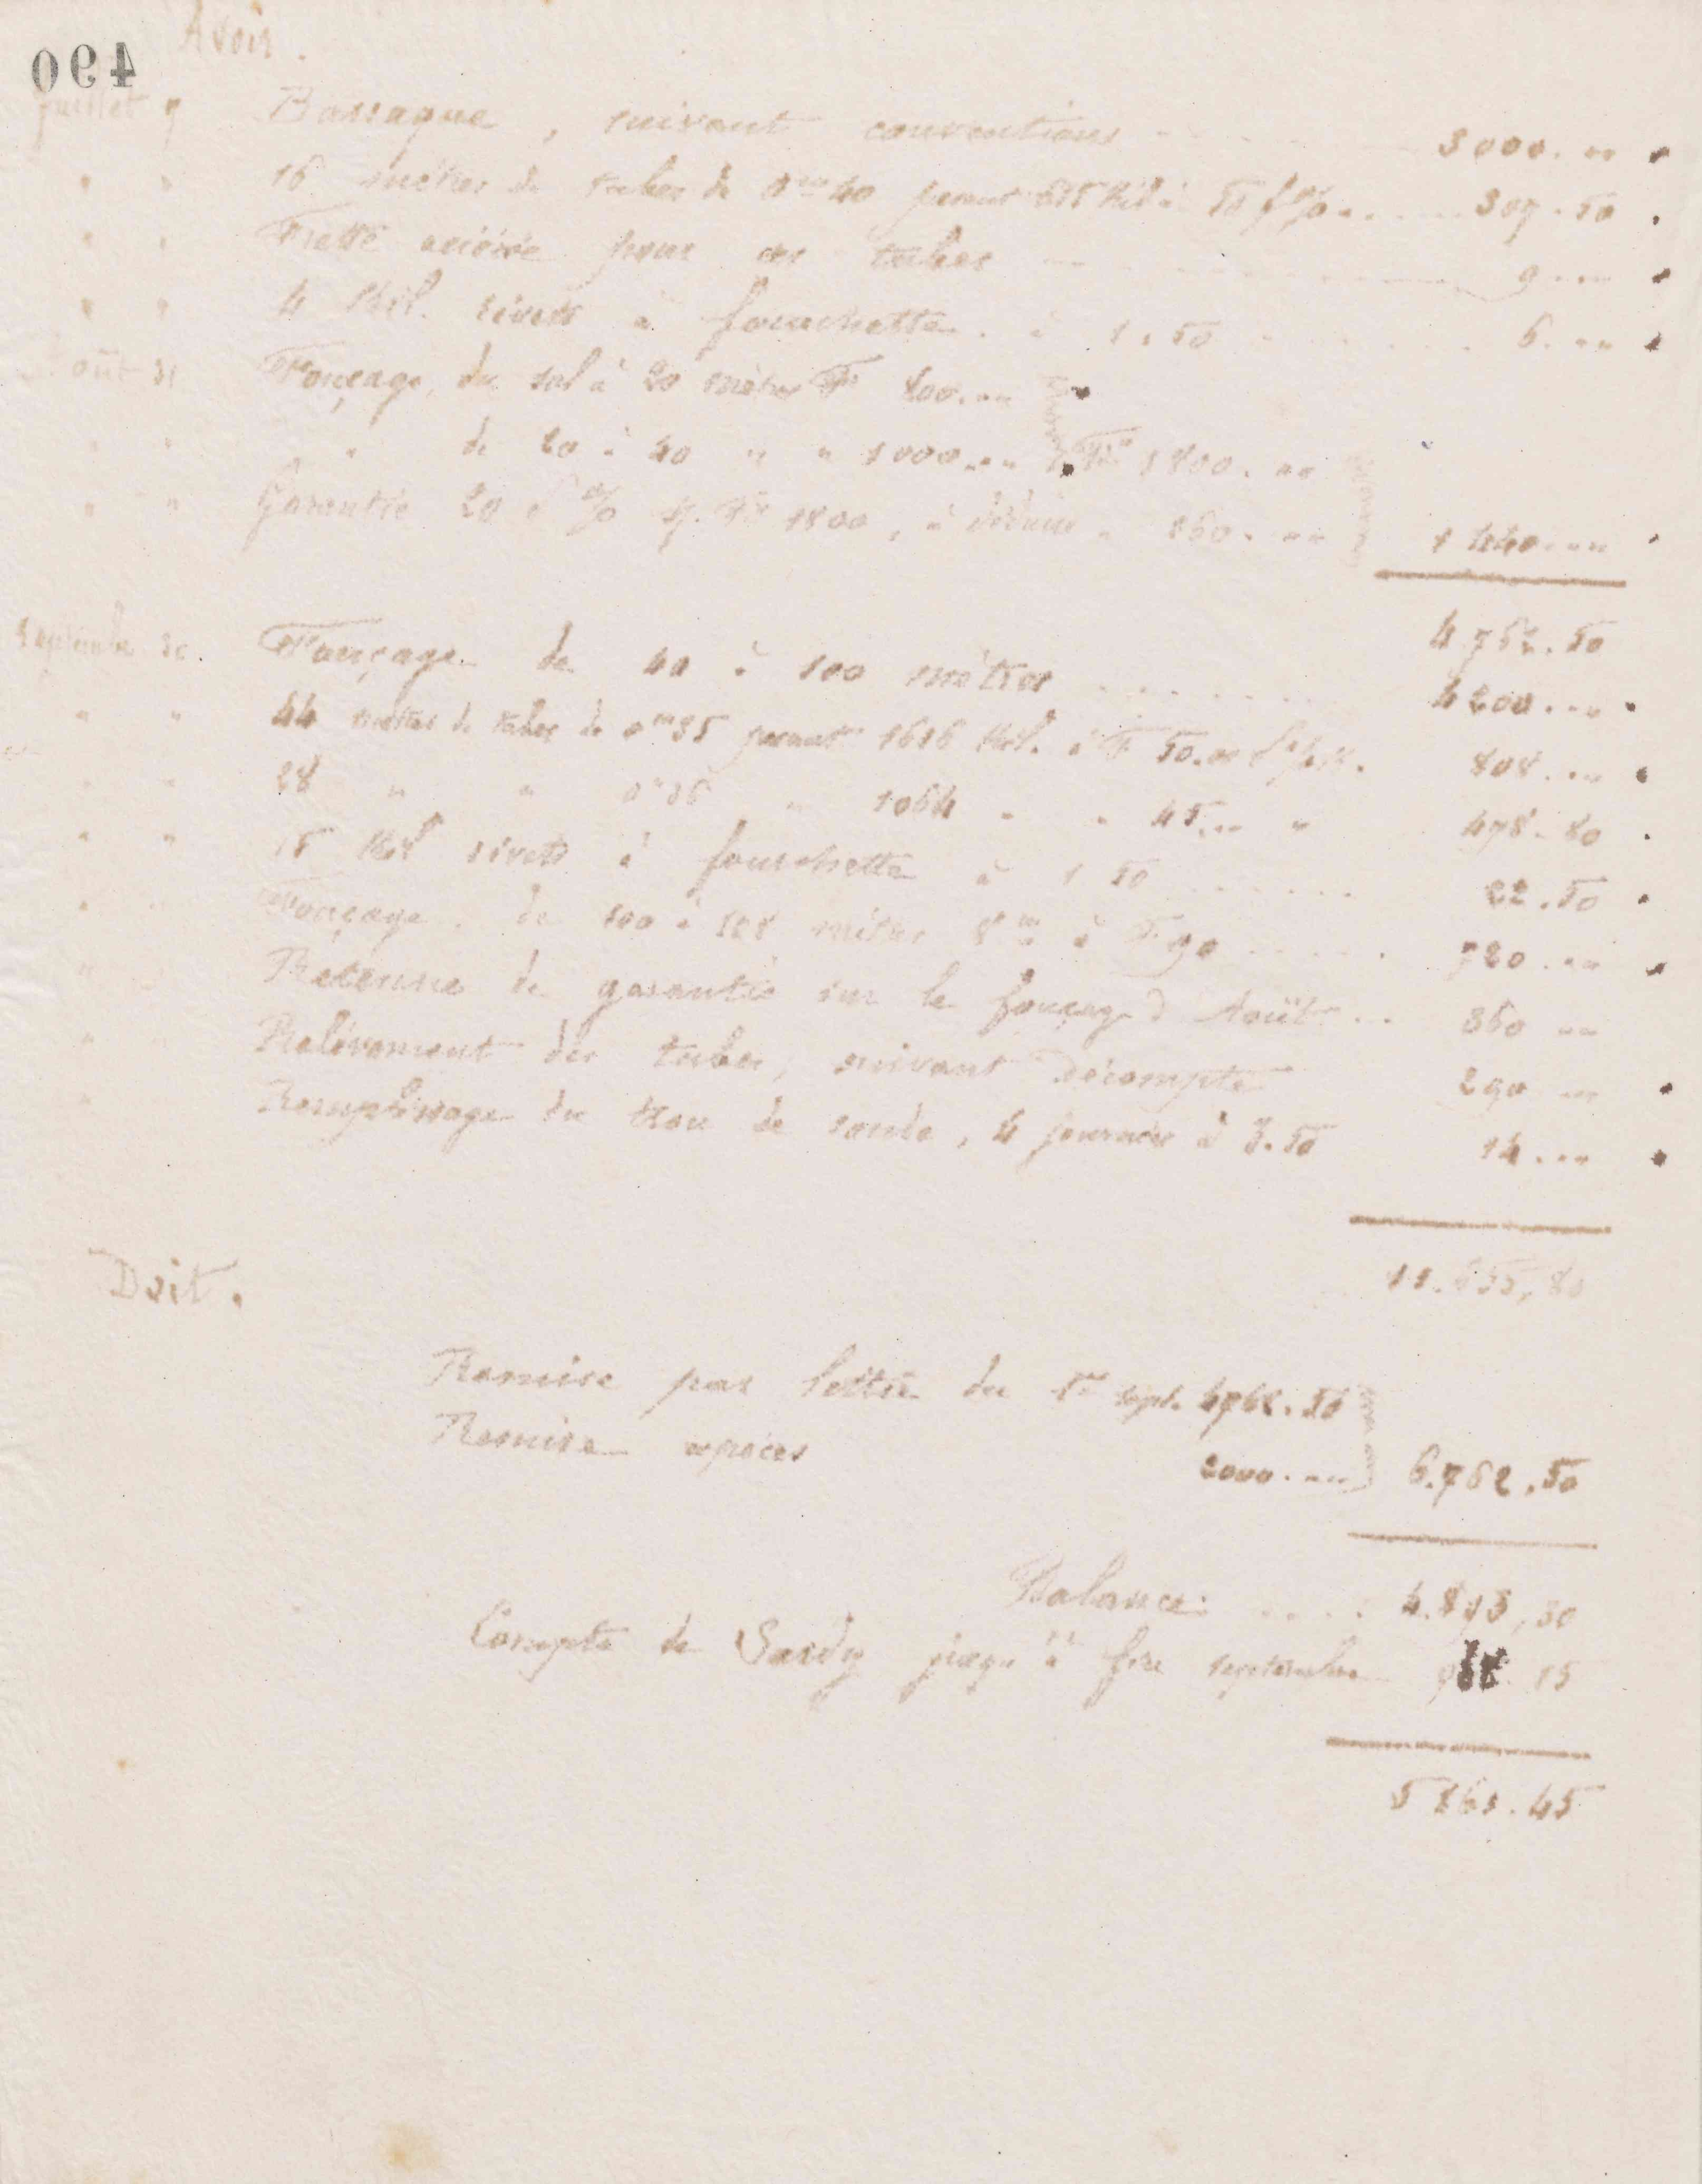 490
Avoir.
Juillet 9 Barraque, suivant conventions 3000. „ „
" " 16 mètres de tubes de 0m40 pesant 615 Kil à 50 f % 307.50
" " Frette acérée pour ces tubes 9 „ „
" " 4 Kil. rivets à fourchette à 1.50 6. „ „
Août 31 Fonçage, du sol à 20 mètres Fr 800. „ „
" " " de 20 à 40 " " 1000. „ „ Fr 1800. „ „
" " Garantie 20 % s/. Fr 1800, à déduire 360. „ „ 1440. „ „
4762.50
Septembre 30. Fonçage de 40 à 100 mètres 4200. „ „
" " 44 mètres de tubes de 0m35 pesant 1616 Kil. à F 50. „ 808. „ „
" " 28 " " 0m35 " 1064 " " 45. „ " 478.80
" " 15 Kil rivets à fourchette à 1.50 22.50
" " Fonçage de 100 à 108 mètres 8m à F 90 720. „ „
" " Retenue de garantie sur le fonçage d'Août 360 „ „
" " Relèvement des tubes, suivant décompte 290 „ „
" Remplissage du trou de sonde, 4 journées à 3.50 14. „ „
11.655,80
Doit.
Remise par lettre du 1er sept. 4762.50
Remise espèces 2000. „ „ 6.762.50
Balance: 4.893,30
Compte de Sardy jusqu'à fin septembre 15
5861.45